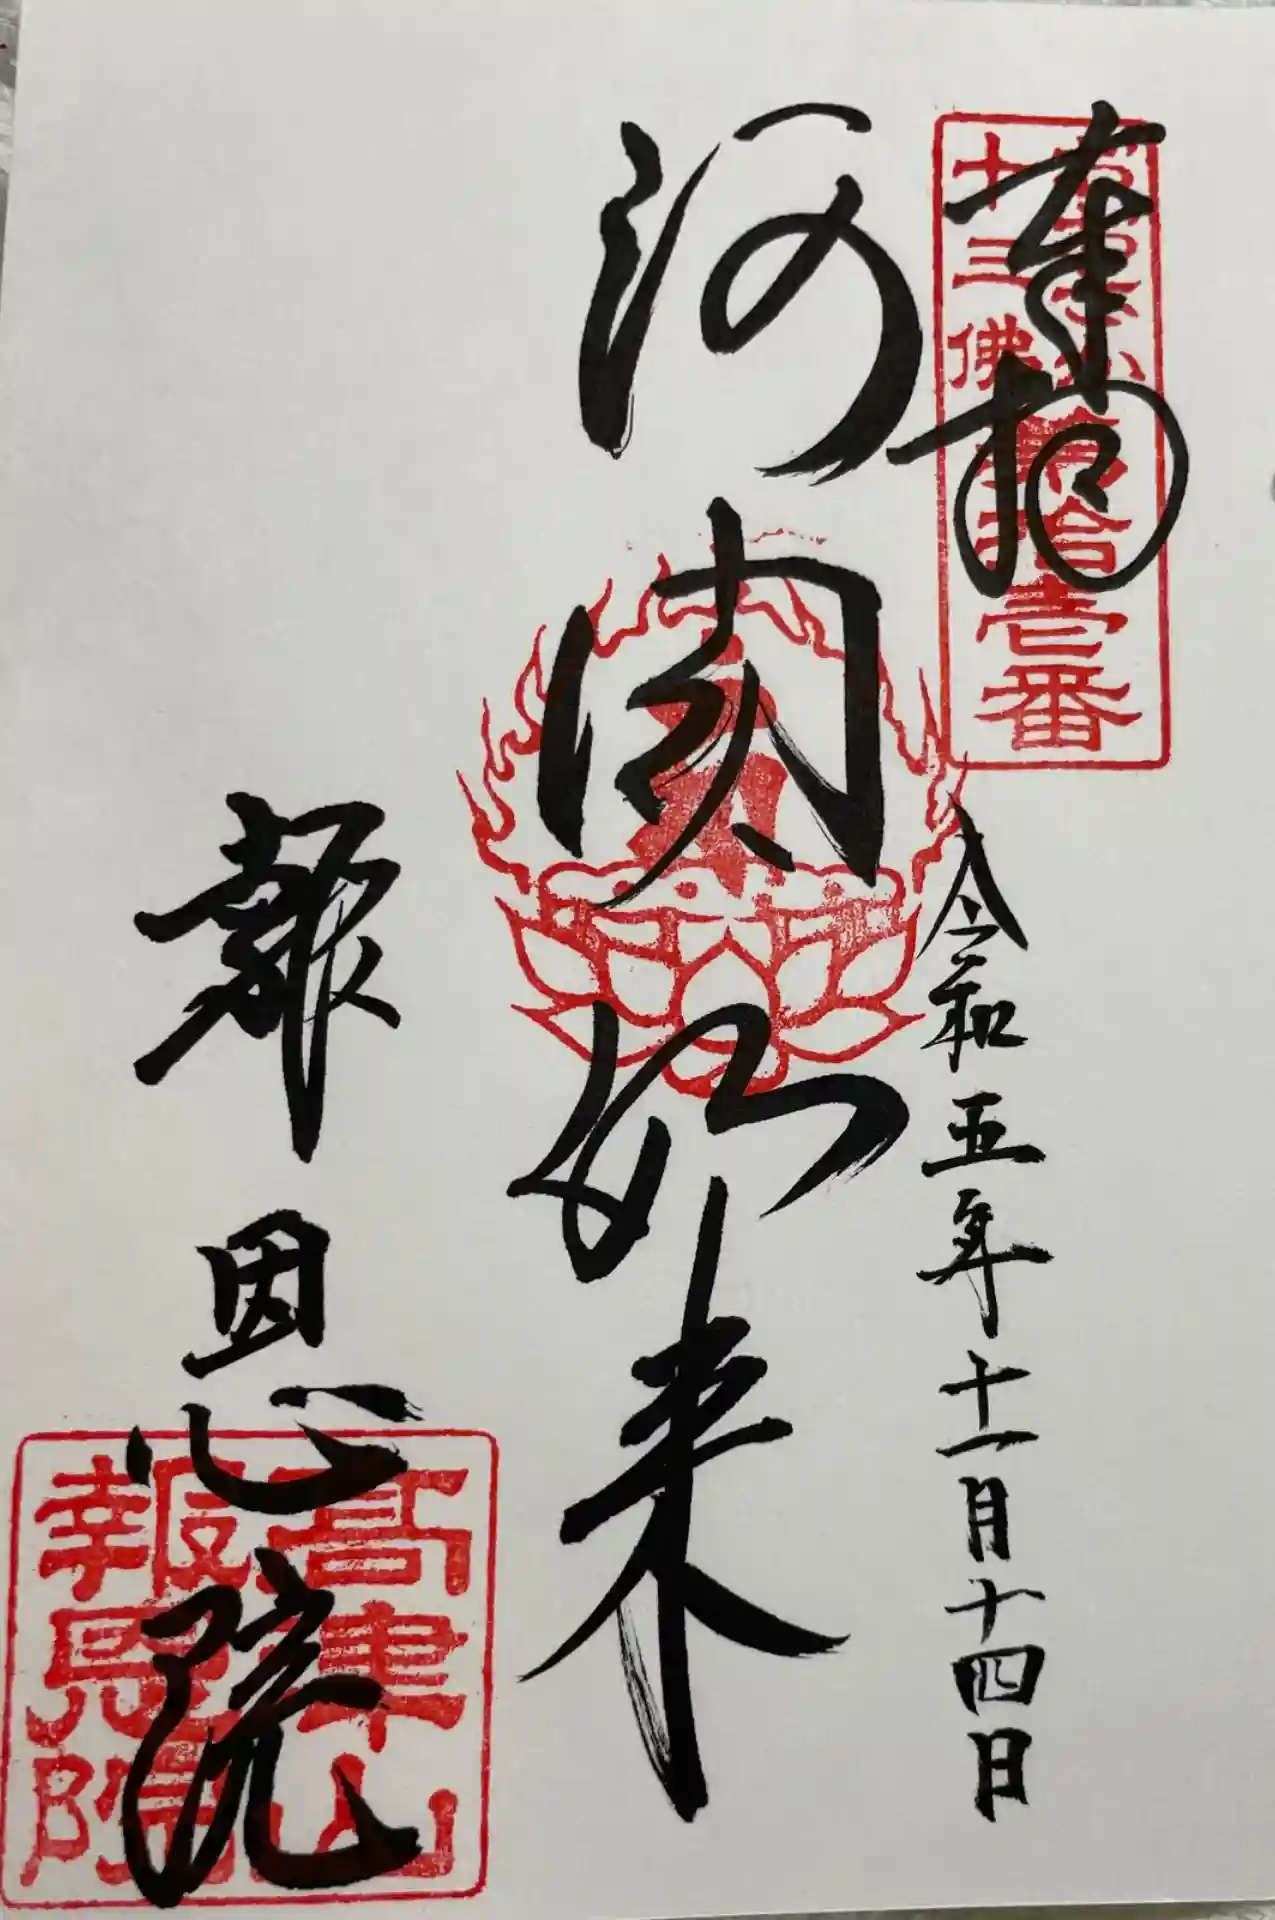 奉拝
十三佛
第拾壱番
令和五年十一月十四日
阿閦如来
報恩院
高津山
報恩院